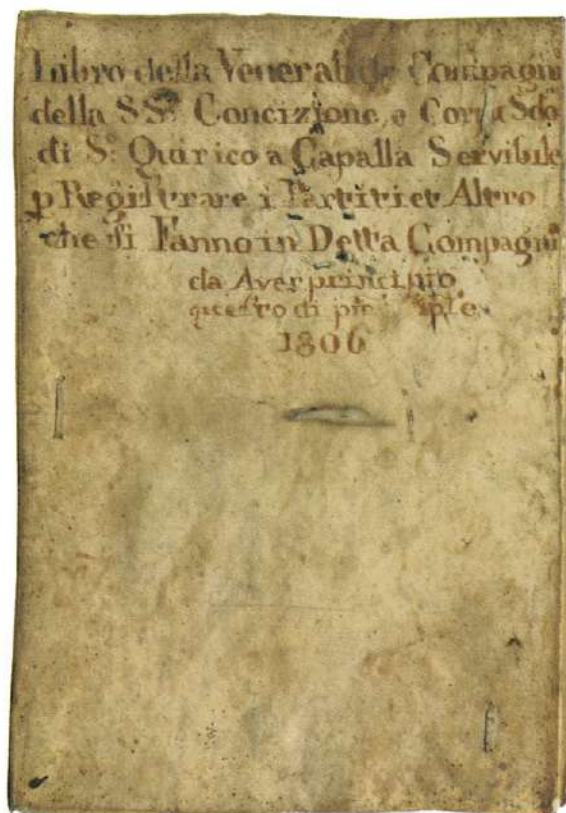 Libro della Venerabile Compagni
della SSa. Concizione, e Corp. Sdo
di So. Quirico a Capalla Servibile
p Registrare i Partiti et Altro
che si Fanno in Detta Compagni
da Aver principio
questo di pmo
1806